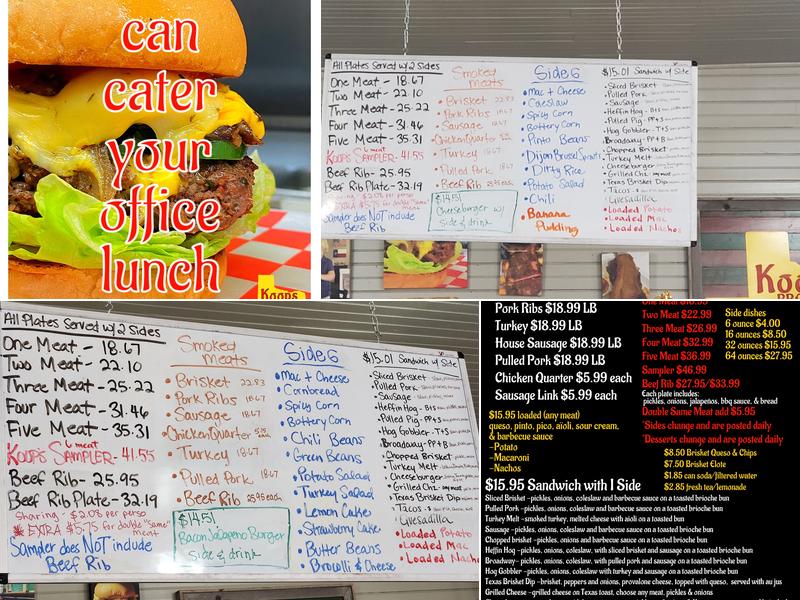 can
cater
your
office
lunch
Koops
All Plates Served w/2 Sides
One Meat - 18.67
Two Meat - 22.10
Three Meat - 25.22
Four Meat - 31.46
Five Meat - 35.31
6 meat
Koops Sampler - 41.55
Beef Rib - 25.95
Beef Rib Plate - 32.19
Sampler does NOT include
Beef Rib
Smoked
meats
• Brisket 22.83
• Pork Ribs 18.67
• Sausage 18.67
• Chicken Quarter
• Turkey 18.67
• Pulled Pork 18.67
• Beef Rib 25.95 each
$14.51
Cheeseburger w/
Side & drink
Sides
• Mac + Cheese
• Coleslaw
• Spicy Corn
• Buttery Corn
• Pinto Beans
• Dijon Brussel Sprouts
• Dirty Rice
• Potato Salad
• Chili
• Banana
Pudding
$15.01 Sandwich w/ Side
• Sliced Brisket
• Pulled Pork
• Sausage
• Heffin Hog - B+S
• Pulled Pig - PP+S
• Hog Gobbler - T+S
• Broadway - PP+B
• Chopped Brisket
• Turkey Melt
• Cheeseburger
• Grilled Chz
• Texas Brisket Dip
• Tacos
• Quesadilla
• Loaded Potato
• Loaded Mac
• Loaded Nachos
Koo
All Plates Served w/2 Sides
One Meat - 18.67
Two Meat - 22.10
Three Meat - 25.22
Four Meat - 31.46
Five Meat - 35.31
6 meat
Koops Sampler - 41.55
Beef Rib - 25.95
Beef Rib Plate - 32.19
Sharing - $2.08 per person
* EXTRA $5.75 for double "Same"
meat
Sampler does NOT include
Beef Rib
Smoked
meats
• Brisket 22.83
• Pork Ribs 18.67
• Sausage 18.67
• Chicken Quarter
• Turkey
• Pulled Pork 18.67
• Beef Rib 25.95 each
$14.51
Bacon Jalapeno Burger
Side & drink
Sides
• Mac + Cheese
• Cornbread
• Spicy Corn
• Buttery Corn
• Chili Beans
• Green Beans
• Potato Salad
• Turkey Salad
• Lemon Cake
• Strawberry Cake
• Butter Beans
• Browlli & Cheese
$15.01 Sandwich w/ Side
• Sliced Brisket
• Pulled Pork
• Sausage
• Heffin Hog - B+S
• Pulled Pig - PP+S
• Hog Gobbler - T+S
• Broadway - PP+B
• Chopped Brisket
• Turkey Melt
• Cheeseburger
• Grilled Chz
• Texas Brisket Dip
• Tacos
• Quesadilla
• Loaded Potato
• Loaded Mac
• Loaded Nacho
Pork Ribs $18.99 LB
Turkey $18.99 LB
House Sausage $18.99 LB
Pulled Pork $18.99 LB
Chicken Quarter $5.99 each
Sausage Link $5.99 each
$15.95 loaded (any meat)
queso, pinto, pico, aioli, sour cream,
& barbecue sauce
-Potato
-Macaroni
-Nachos
Two Meat $22.99
Three Meat $26.99
Four Meat $32.99
Five Meat $36.99
Sampler $46.99
Beef Rib $27.95/$33.99
Each plate includes:
pickles, onions, jalapeños, bbq sauce, & bread
Double Same Meat add $5.95
*Sides change and are posted daily
*Desserts change and are posted daily
Side dishes
6 ounce $4.00
16 ounces $8.50
32 ounces $15.95
64 ounces $27.95
$8.50 Brisket Queso & Chips
$7.50 Brisket Elote
$1.85 can soda/filtered water
$2.85 fresh tea/lemonade
$15.95 Sandwich with 1 Side
Sliced Brisket -pickles, onions, coleslaw and barbecue sauce on a toasted brioche bun
Pulled Pork -pickles, onions, coleslaw and barbecue sauce on a toasted brioche bun
Turkey Melt -smoked turkey, melted cheese with aioli on a toasted bun
Sausage -pickles, onions, coleslaw and barbecue sauce on a toasted brioche bun
Chopped brisket -pickles, onions and barbecue sauce on a toasted brioche bun
Heffin Hog -pickles, onions, coleslaw, with sliced brisket and sausage on a toasted brioche bun
Broadway- pickles, onions, coleslaw, with pulled pork and sausage on a toasted brioche bun
Hog Gobbler -pickles, onions, coleslaw with turkey and sausage on a toasted brioche bun
Texas Brisket Dip -brisket, peppers and onions, provalone cheese, topped with queso, served with au jus
Grilled Cheese -grilled cheese on Texas toast, choose any meat, pickles & onions